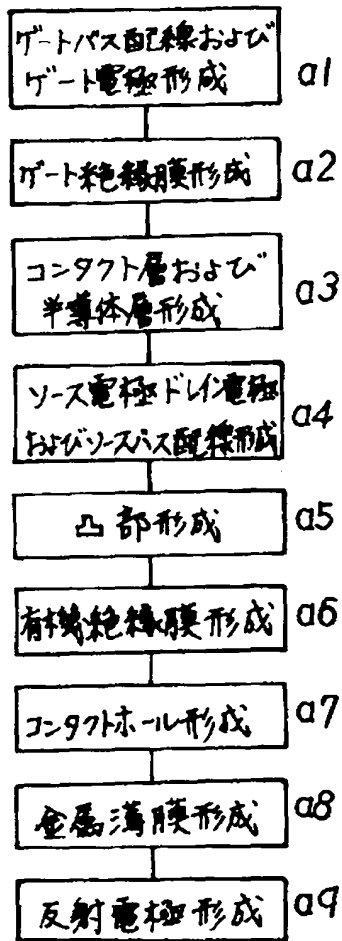 ゲートバス配線および
ゲート電極形成
a1
ゲート絶縁膜形成
a2
コンタクト層および
半導体層形成
a3
ソース電極ドレイン電極
およびソースバス配線形成
a4
凸部形成
a5
有機絶縁膜形成
a6
コンタクトホール形成
a7
金属薄膜形成
a8
反射電極形成
a9